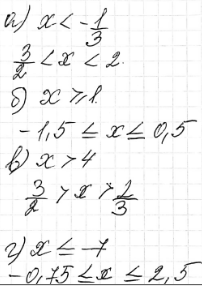 а) x < -1/3
3/2 < x < 2.
б) x ⩾ 1.
-1,5 ≤ x ≤ 0,5
в) x > 4
3/2 > x > 1/3
г) x ≤ -7
-0,75 ≤ x ≤ 2,5